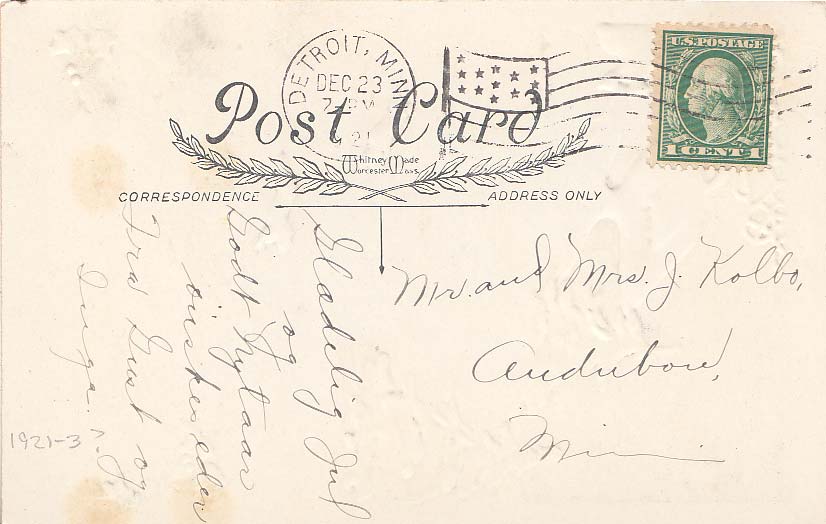 DETROIT, MINN.
DEC 23
7 PM
21
U.S. POSTAGE
1 CENT 1
Post Card
Whitney Made
Worcester Mass.
CORRESPONDENCE
ADDRESS ONLY
Gladelig Jul
og
Godt Nytaar
önskes eder
Fra Gust og
Inga
Mr. and Mrs. J. Kolbo,
Audubon,
Minn
1921-3